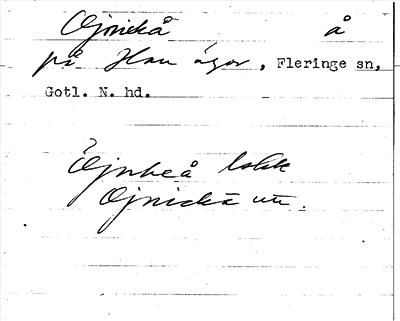 Ojnickå å
på Hau ägor, Fleringe sn,
Gotl. N. hd.
Ojnkeå lokk
Ojnickå utt.